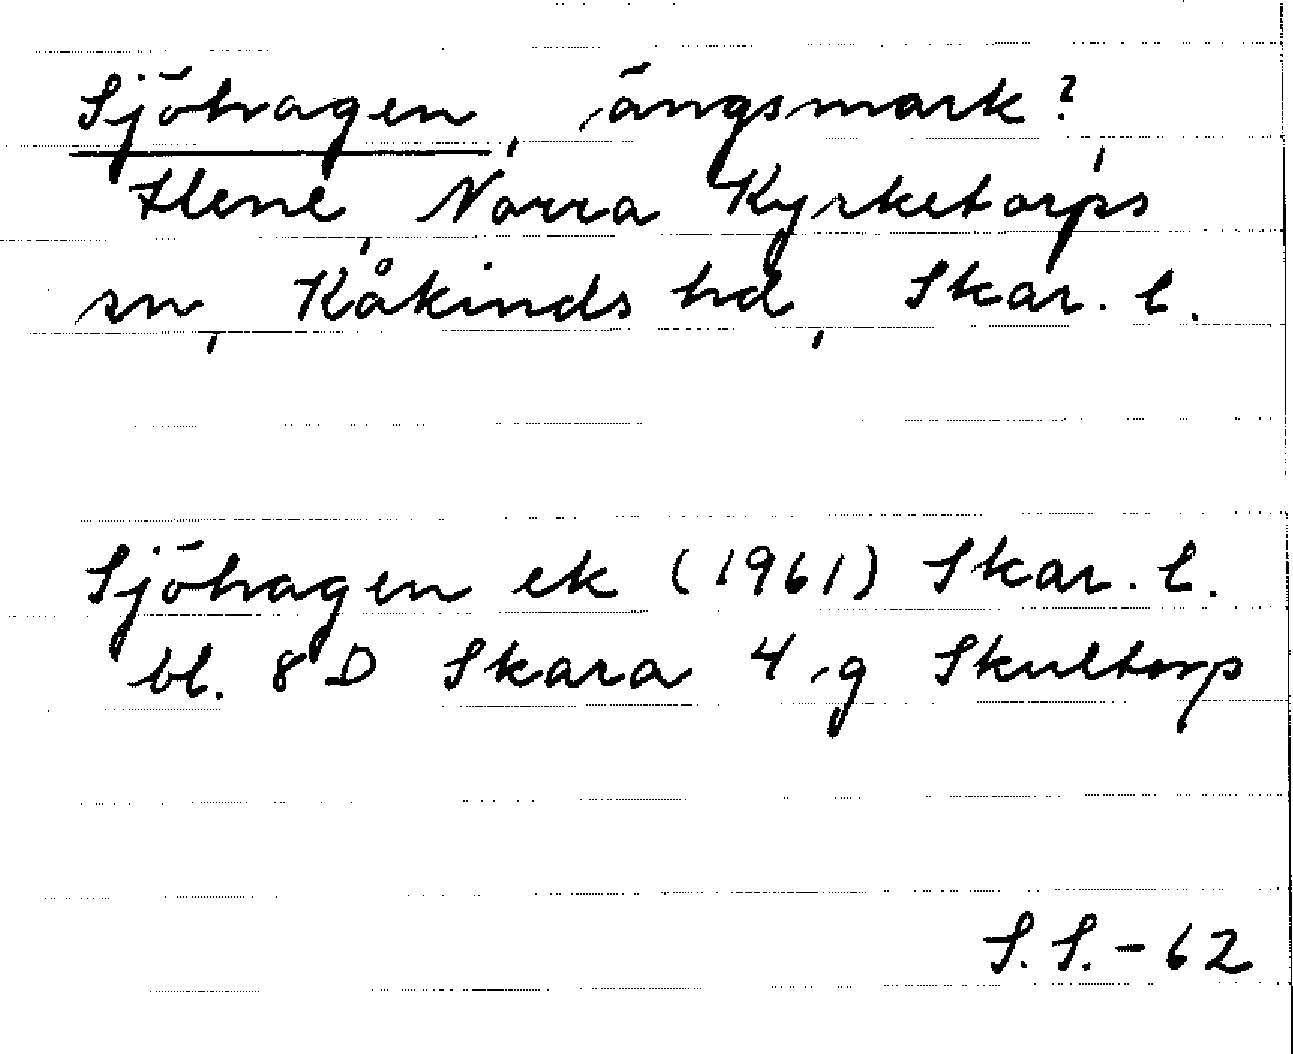 Sjöhagen, ängsmark?
Hene, Norra Kyrketorps
sn, Kåkinds hd, Skar. l.
Sjöhagen ek (1961) Skar. l.
bl. 8 D Skara 4 g Skultorp
S.S.-62